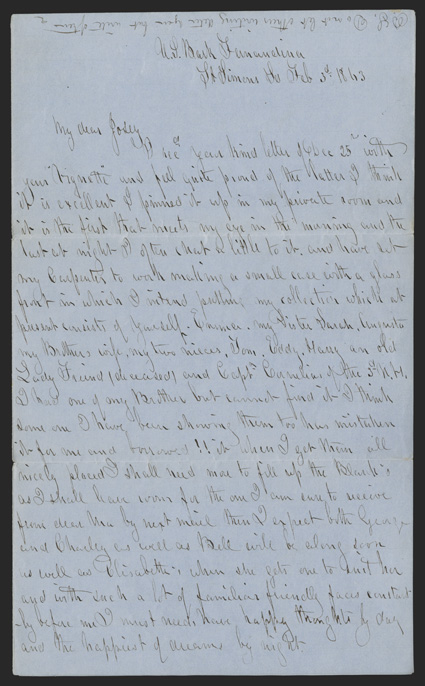 P.S. Do not let others writing deter you but write often
U.S. Bark Fernandina
St Simons Sd Feb 3d. 1863
My dear Josey,
I recd your kind letter of Dec 25th with
your Vignette and feel quite proud of the latter I think
it is excellent I pinned it up in my private room and
it is the first that meets my eye in the morning and the
last at night I often chat a little to it. and have set
my Carpenter to work making a small case with a glass
front in which I intend putting my collection which at
present consists of yourself. Emma. my Sister Sarah, Augusta
my Brothers wife, my two nieces, Tom, Eddy, Harry, an old
Lady Friend (deceased) and Captn Cornelius of the 3d N.H.
I had one of my Brother but cannot find it I think
some one I have been showing them too has mistaken
it for me and borrowed!! it when I get them all
nicely placed I shall need more to fill up the Blank's
as I shall leave room for the one I am sure to receive
from dear Ma by next mail then I expect both George
and Charley as well as Bell will be along soon
as well as Elizabeth's when she gets one to suit her
and with such a lot of familiar friendly faces constant
-ly before me I must needs have happy thoughts by day
and the happiest of dreams by night